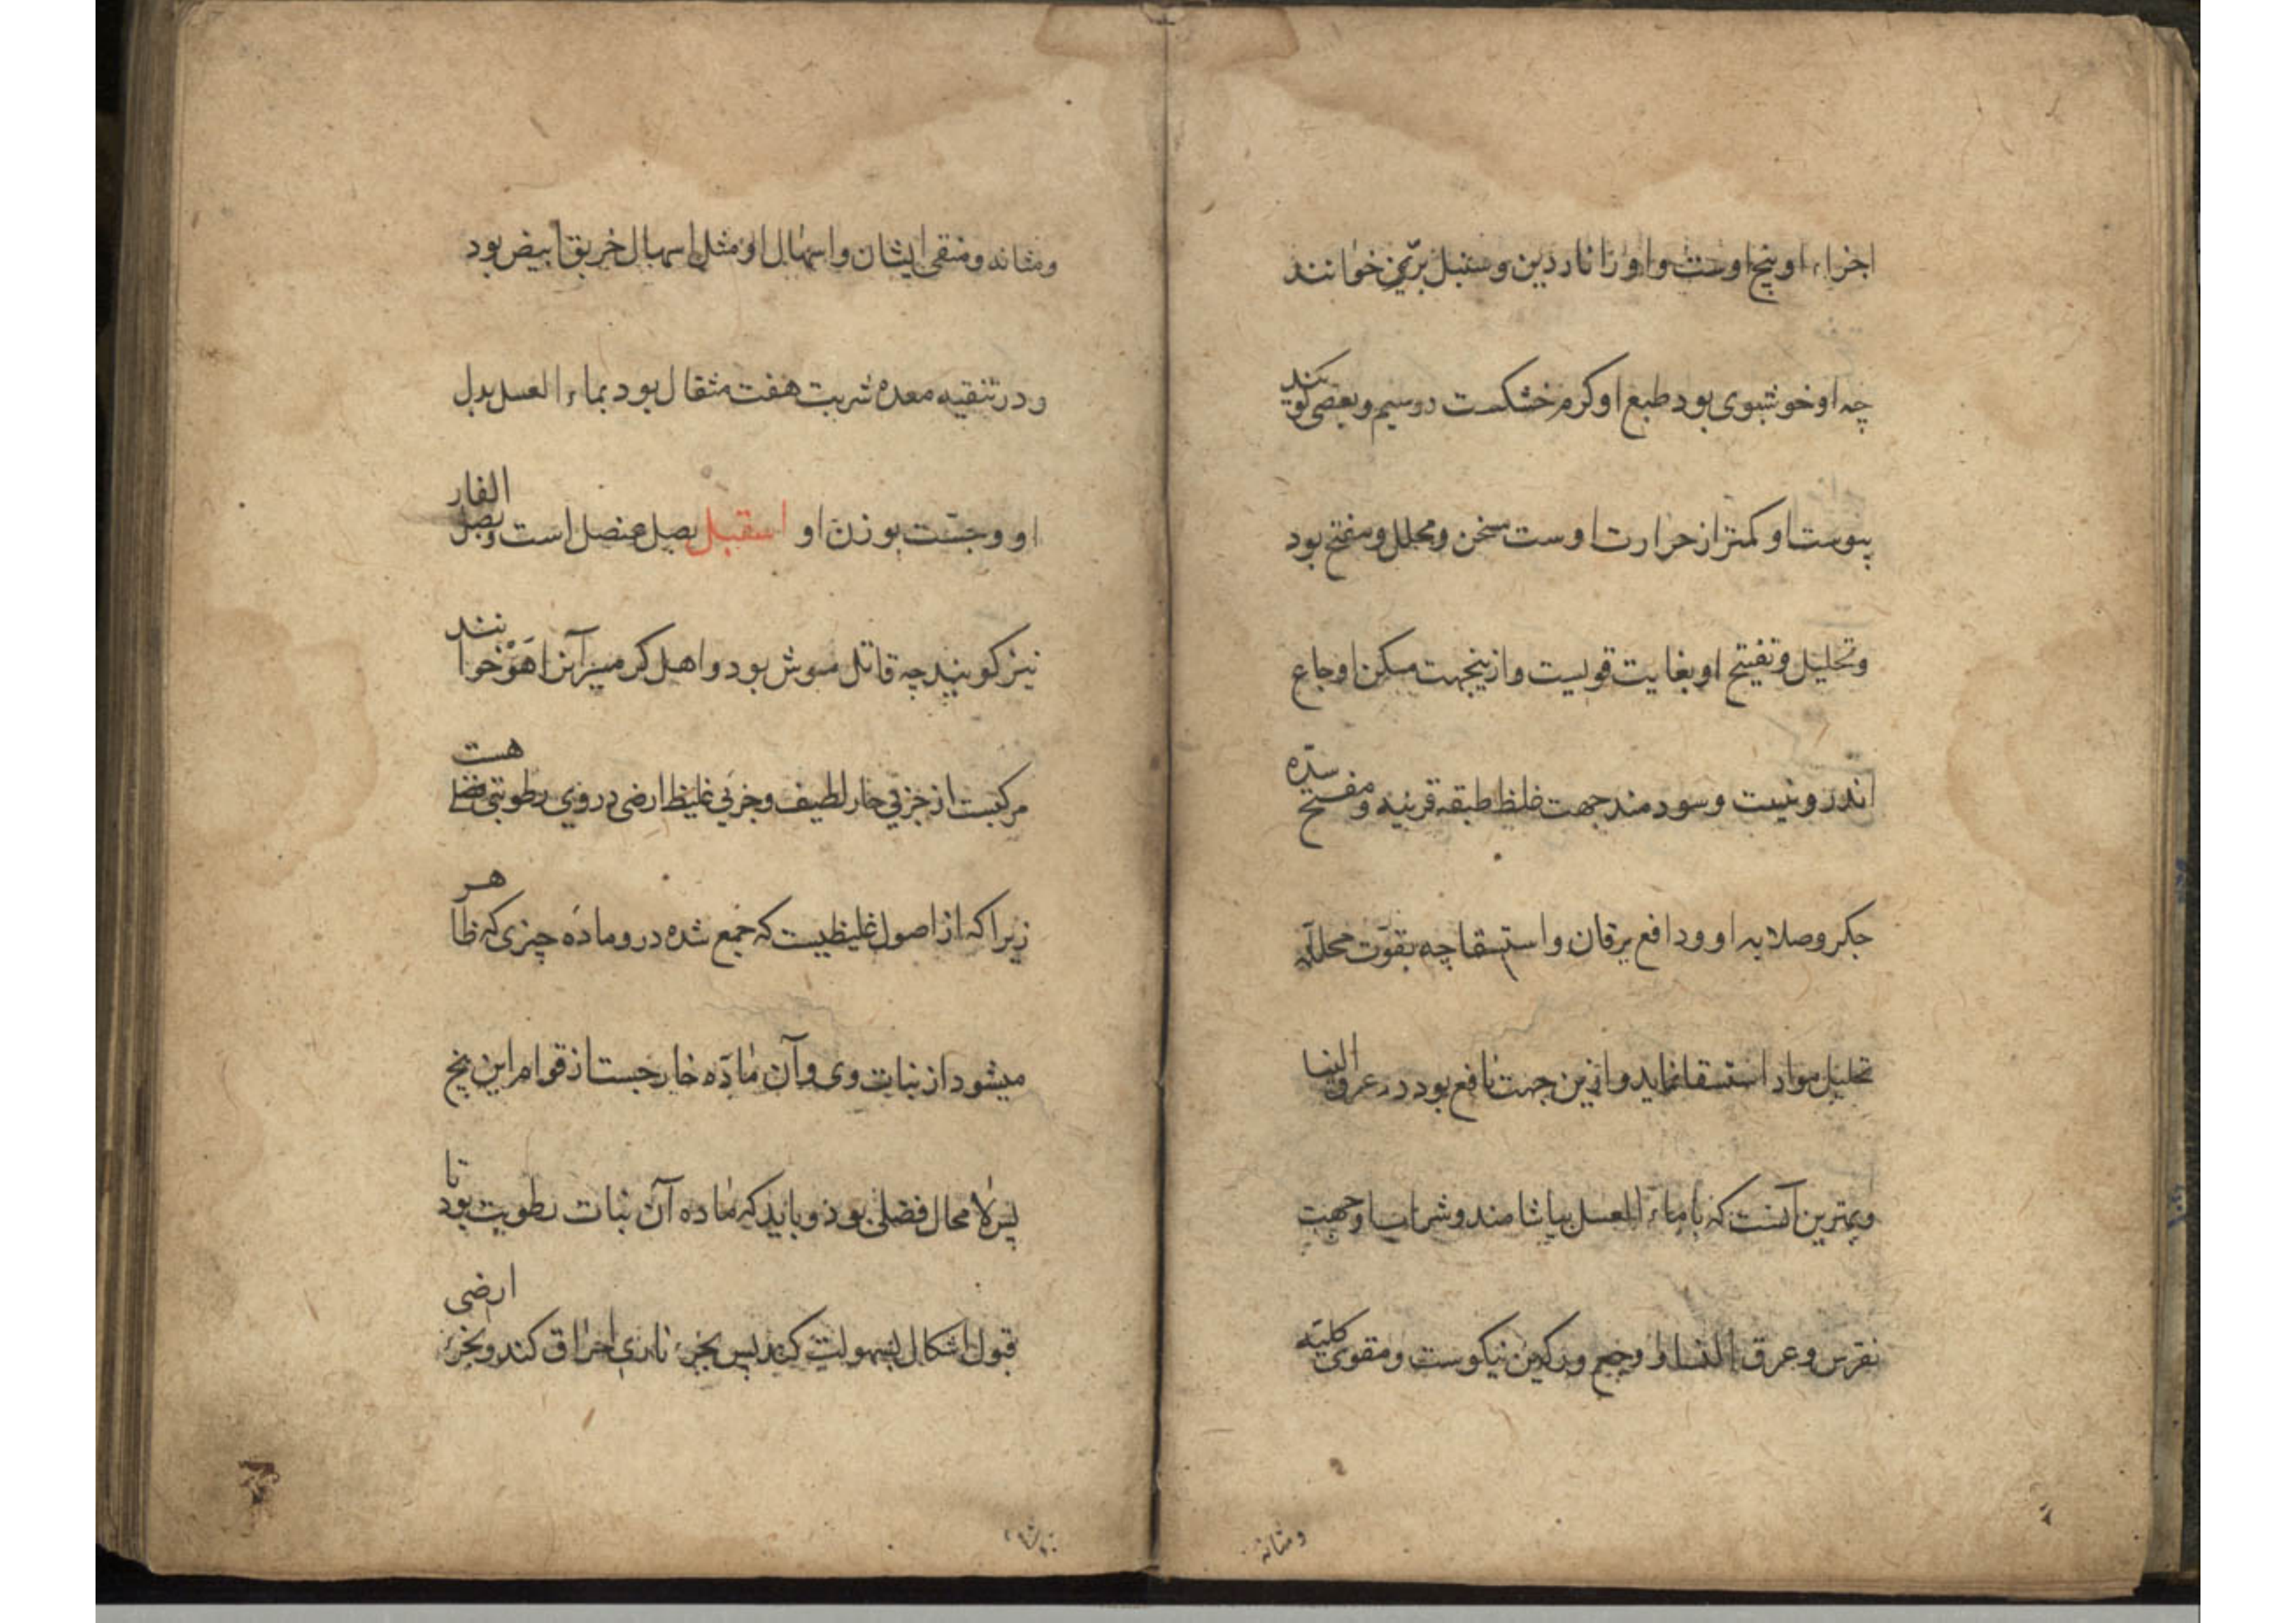 اجزاء او بیخ اوست و او را ناردین و سنبل برّی خوانند
چه او خوشبوی بود طبع او کرم خشکست در سیم و بعضی کویند
یبوست او کمتر از حرارت اوست مسخن و محلل و مفتح بود
و تحلیل و تفتیح او بغایت قویست و ازینجهت مسکن اوجاع
اندرونیست و سودمند جهت غلظ طبقه قرنیه و مفتح سدّه
جکر و صلابه او و دافع یرقان و استسقا چه بقوّت محلله
تحلیل مواد استسقا نماید و ازین جهت نافع بود در عرق النسا
و بهترین آنست که با ماء العسل بیاشامند و شراب او جهت
نقرس و عرق النسا و وجع ورکین نیکوست و مقوی کلیه
و مثانه
و مثانه و منقی ایشان و اسهال او مثل اسهال خربق ابیض بود
و در تنقیه معده شربت هفت مثقال بود بماء العسل بدل
او وجست بوزن او اسقیل بصل عنصل است و بصل الفار
نیز کویند چه قاتل موش بود و اهل کرمسیر آنرا هَوْ خوانند
مرکبست از جزیی حار لطیف و جزیی غلیظ ارضی در وی رطوبتی فضلی هست
زیرا که از اصول غلیظیست که جمع شده در و مادّه چیزی که ظاهر
میشود از نبات وی و آن مادّه خارجست از قوام این بیخ
پس لا محال فضلی بود و باید که ماده آن نبات رطوبت بود تا
قبول اشکال بسهولت کند پس بجزء ناری احراق کند و بجزء ارضی